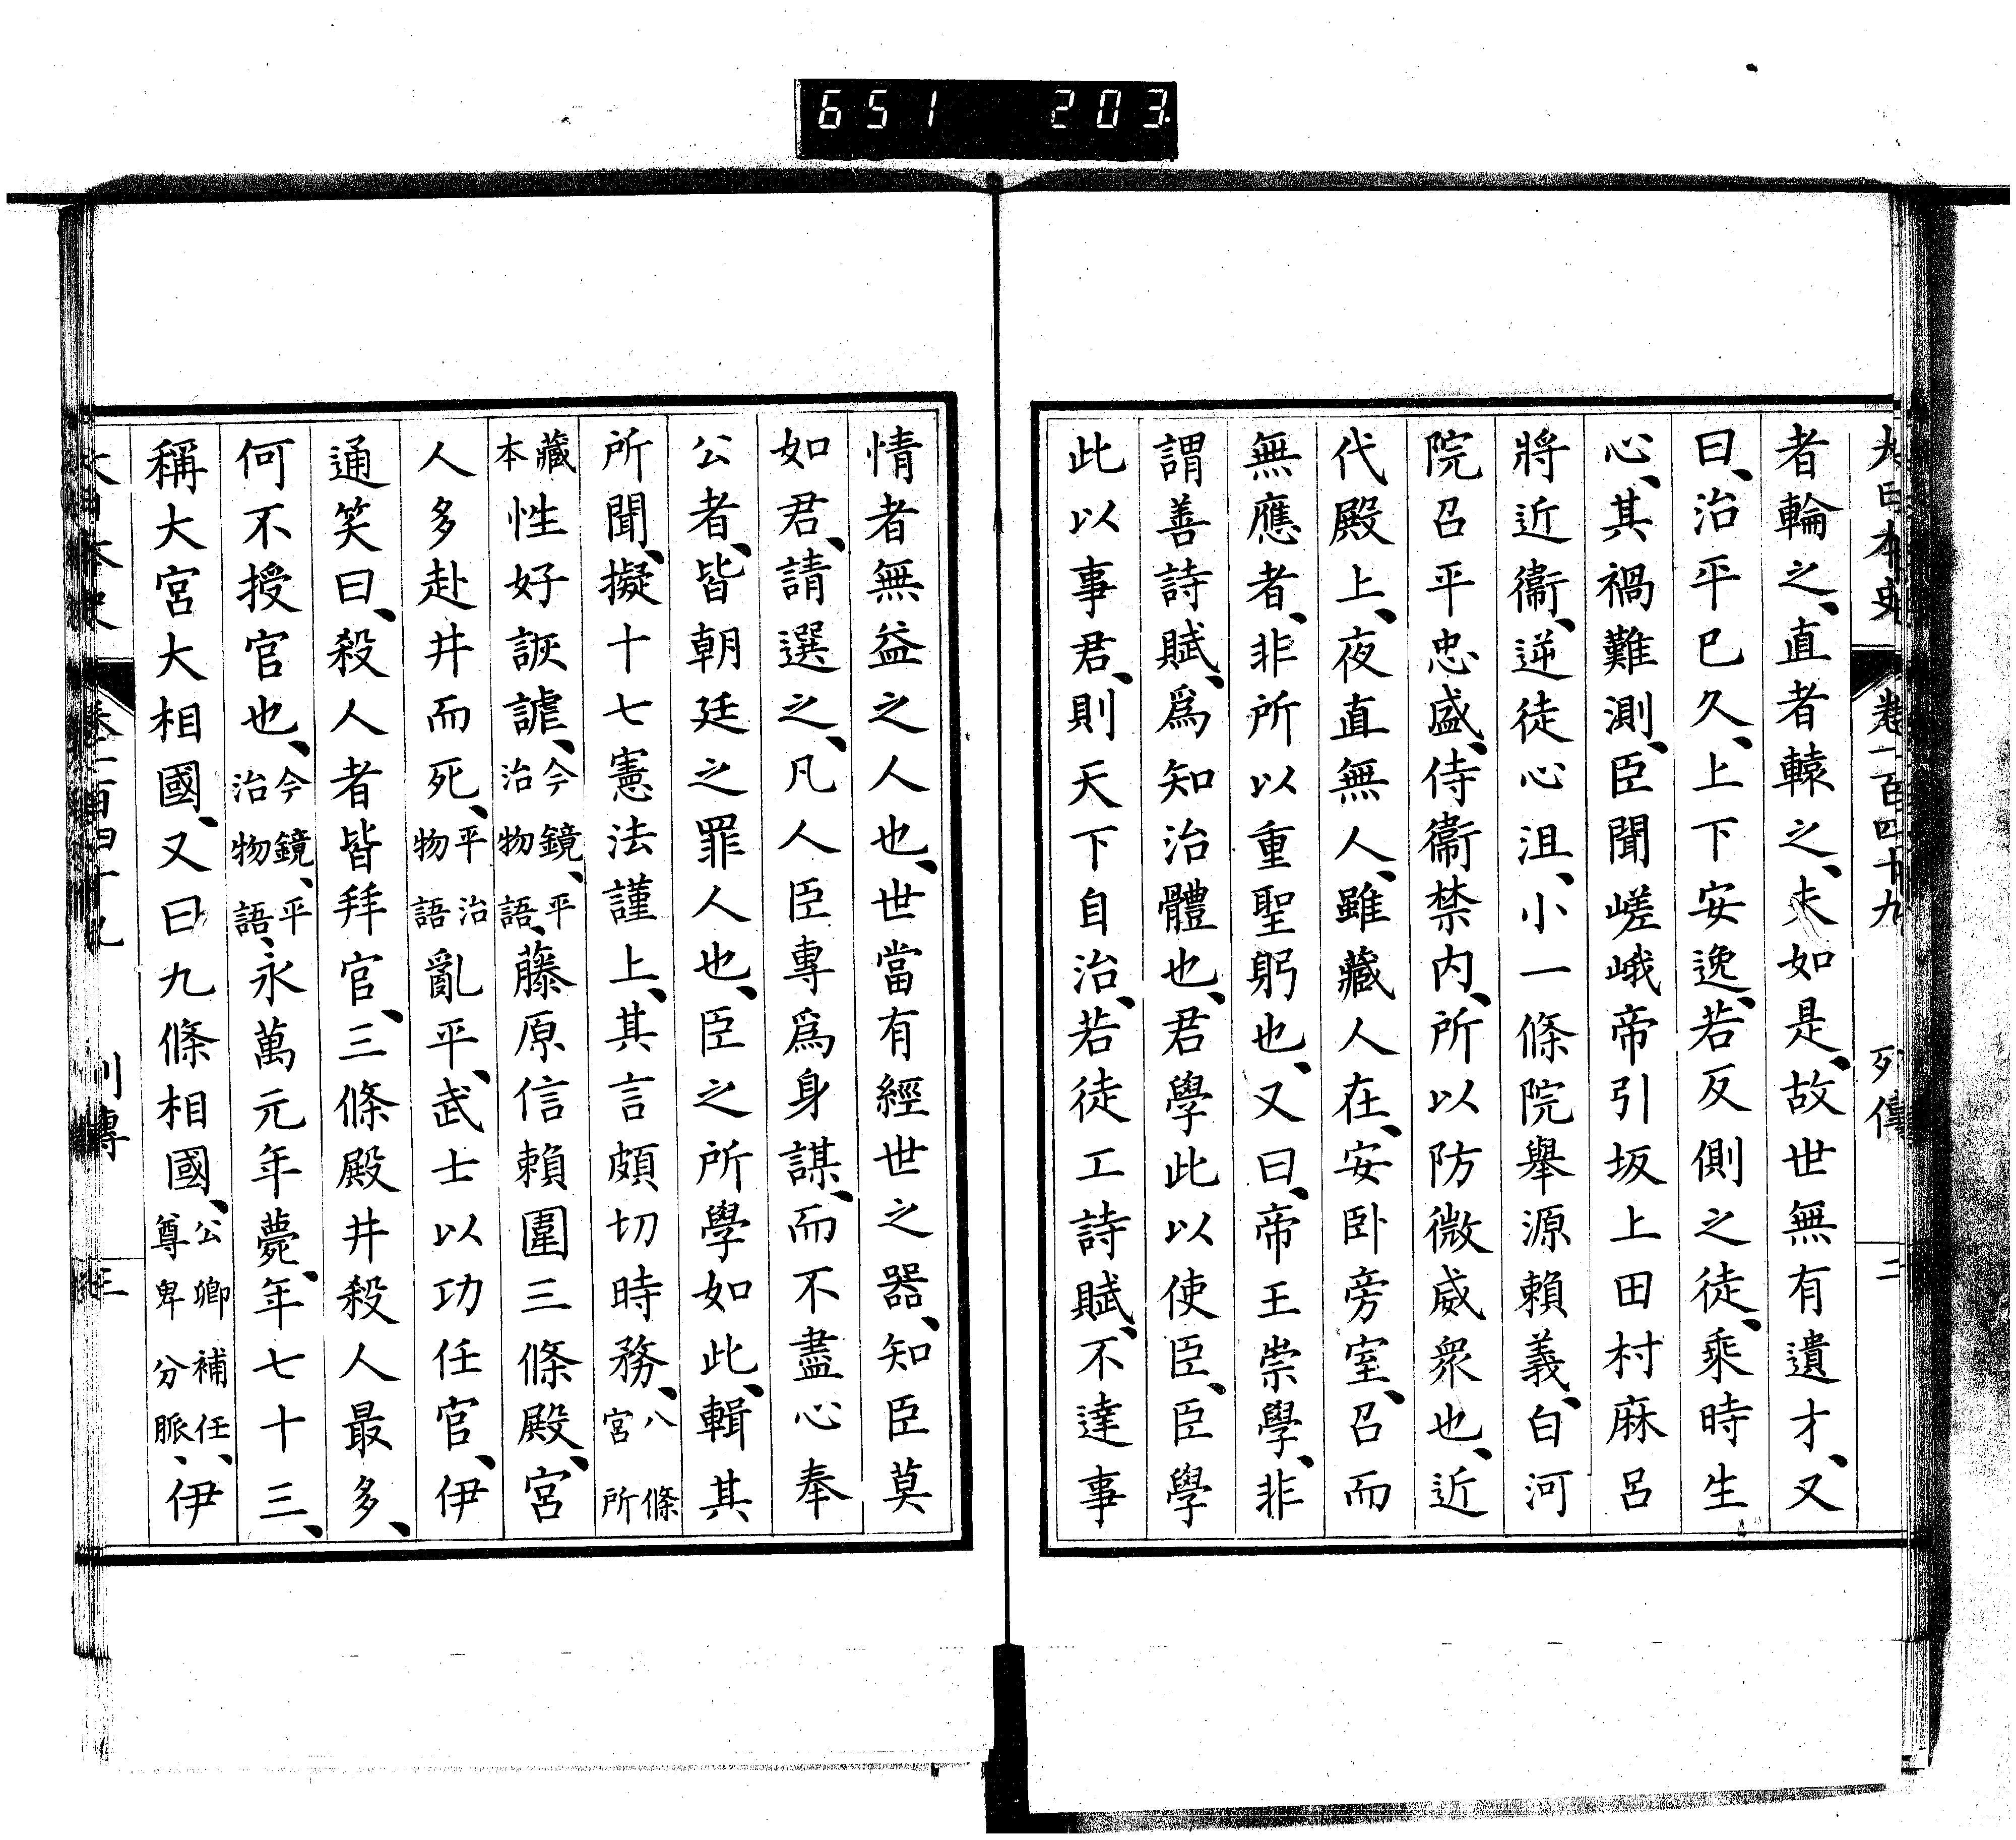 651 203
大日本史 卷一百四十九 列傳 二
者輪之、直者轅之、夫如是、故世無有遺才、又
曰、治平已久、上下安逸、若反側之徒、乘時生
心、其禍難測、臣聞嵯峨帝引坂上田村麻呂
將近衞、逆徒心沮、小一條院舉源賴義、白河
院召平忠盛、侍衞禁内、所以防微威衆也、近
代殿上、夜直無人、雖藏人在、安卧旁室、召而
無應者、非所以重聖躬也、又曰、帝王崇學、非
謂善詩賦、爲知治體也、君學此以使臣、臣學
此以事君、則天下自治、若徒工詩賦、不達事
情者無益之人也、世當有經世之器、知臣莫
如君、請選之、凡人臣專爲身謀、而不盡心奉
公者、皆朝廷之罪人也、臣之所學如此、輯其
所聞、擬十七憲法謹上、其言頗切時務、八條宮所
藏本性好詼謔、今鏡、平治物語、藤原信賴圍三條殿、宮
人多赴井而死、平治物語亂平、武士以功任官、伊
通笑曰、殺人者皆拜官、三條殿井殺人最多、
何不授官也、今鏡、平治物語、永萬元年薨、年七十三、
稱大宮大相國、又曰九條相國、公卿補任、尊卑分脈、伊
大日本史 卷一百四十九 列傳 三